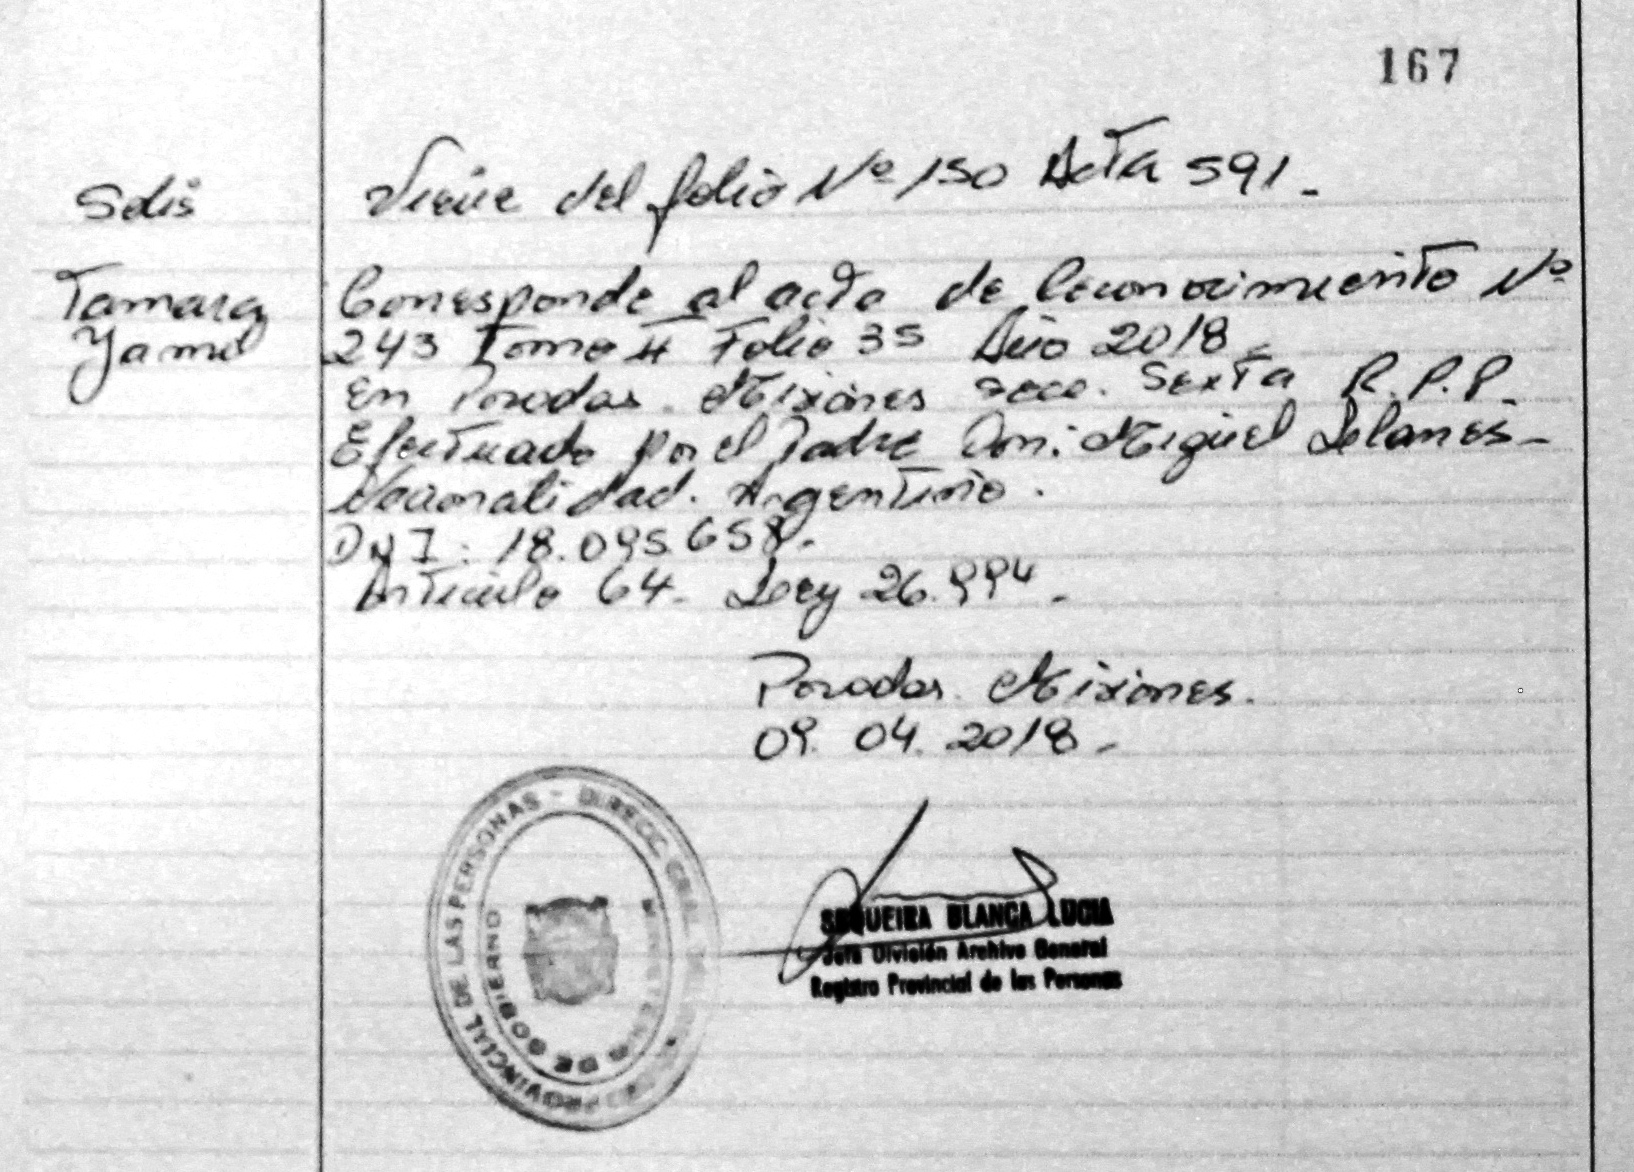 167
Solis
Viene del folio Nº 150 Acta 591.-
Tamara
Yamil
Corresponde al acta de Reconocimiento Nº
243 Tomo II Folio 35 Año 2018.-
en Posadas. Misiones secc. Sexta R.P.P.
Efectuado por el Padre Don: Miguel
Nacionalidad. Argentino.
DNI: 18.095.658.-
Articulo 64- Ley 26.994.-
Posadas. Misiones.
09. 04. 2018.-
PROVINCIAL DE LAS PERSONAS - DIRECC. GRAL.
DE GOBIERNO
SEQUEIRA BLANCA LUCIA
Jefa División Archivo General
Registro Provincial de las Personas